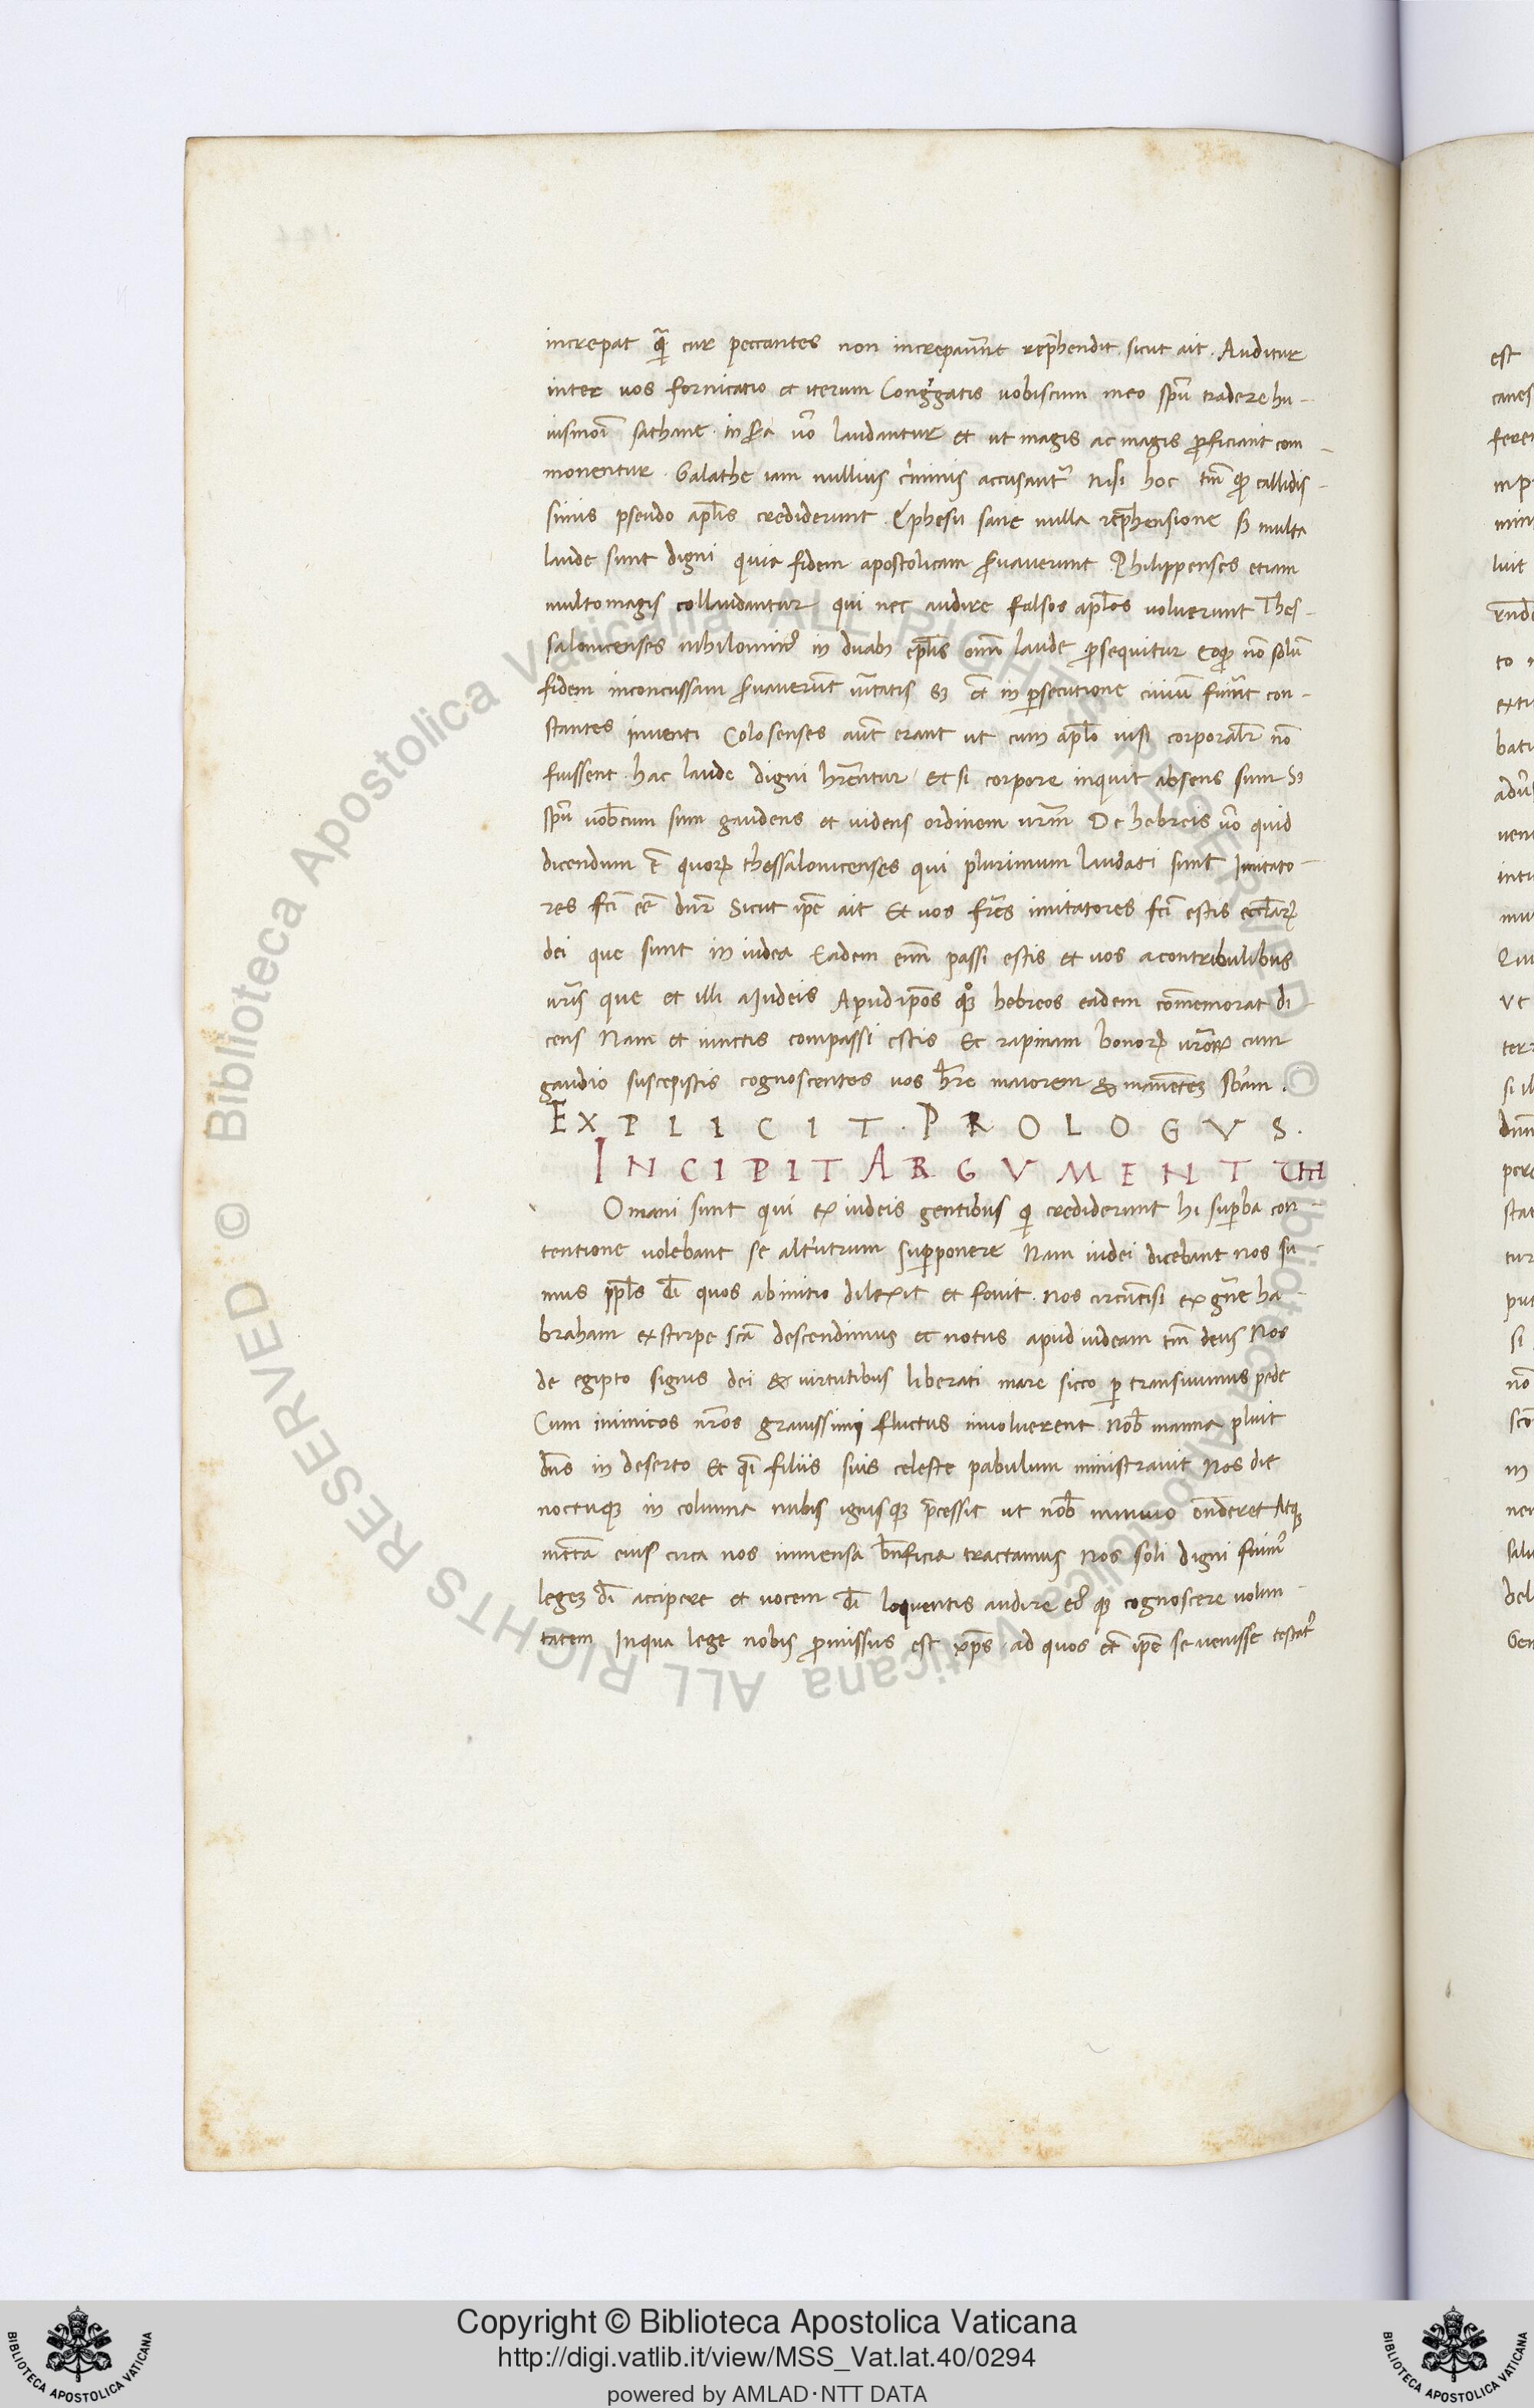 increpat q̃ cur peccantes non increpauert̃ rep̃hendit . sicut ait . Auditur
inter uos fornicatio et iterum Cong̃gatis uobiscum meo sp̃u tradere hu-
iusmoi ̃ sathane . in scd̃a ũo laudantur et ut magis ac magis ꝓficiant com-
monentur . Galathe iam nullius c̃iminis accusant᷑ nisi hoc tm̃ ꝙ callidis-
simis pseudo apl̃is crediderunt . Ephesii sane nulla rep̃hensione sꝫ multa
laude sunt digni quia fidem apostolicam ẜuauerunt Philippenses etiam
multomagis collaudantur qui nec audire falsos apl̃os uoluerunt Thes-
salonicenses nihilomin᷒ in duabꝫ epl̃is om̃i laude ꝓsequitur eoꝙ nõ solũ
fidem inconcussam ẜuauerũt ũitatis sꝫ et̃ in ꝑsecutione ciuiũ fuert̃ con-
stantes inuenti Colosenses aut̃ erant ut cum apl̃o uisi corporalr̃ nõ
fuissent . hac laude digni hr̃entur et si corpore inquit absens sum sꝫ
sp̃u uob̃cum sum gaudens et uidens ordinem ur̃m De hebreis ũo quid
dicendum ẽ quorꝝ thessalonicenses qui plurimum laudati sunt Imitato-
res fc̃i eẽ dnr̃ Sicut ip̃e ait Et uos fr̃es imitatores fc̃i estis eccl̃arꝝ
dei que sunt in iudea Eadem em̃ passi estis et uos acontribulibus
ur̃is que et illi aiudeis Apud ip̃os qꝫ hebreos eadem com̃emorat di-
cens Nam et iunctis compassi estis Et rapinam bonorꝝ ur̃orꝝ cum
gaudio suscepistis cognoscentes uos hr̃e maiorem & manẽteꝫ sb̃am .
EXPLICIT . PROLOGVS .
INCIPIT ARGVMENTUM
Omani sunt qui ex iudeis gentibus qꝫ crediderunt hi suꝑba con-
tentione uolebant se alt̃utrum suꝑponere Nam iudei dicebant Nos su-
mus ppl̃s di ̃ quos abinitio dilexit et fouit . Nos circũcisi ex gñe ha-
braham ex stirpe scã descendimus et notus apud iudeam tm̃ deus Nos
de egipto signis dei & uirtutibus liberati mare sicco ꝑ transiuimus pede
Cum inimicos nr̃os grauissimi fluctus inuoluerent . Nob̃ manna pluit
dñs in deserto et q̃i filiis suis celeste pabulum ministrauit Nos die
noctuqꝫ in columna nubis ignisqꝫ p̃cessit ut nob̃ inuiuo on̄deret Atqꝫ
cet̃a eius circa nos inmensa bñficia tractamus Nos soli digni fuim᷒
legeꝫ di ̃ accipere et uocem di ̃ loquentis audire ei᷒qꝫ cognoscere uolun-
tatem Inqua lege nobis ꝓmissus est xp̃s . ad quos et̃ ip̃e se uenisse testat᷑
est
canes
luit
to
si
nõ
in
Copyright © Biblioteca Apostolica Vaticana
http://digi.vatlib.it/view/MSS_Vat.lat.40/0294
powered by AMLAD·NTT DATA
BIBLIOTECA APOSTOLICA VATICANA
BIBLIOTECA APOSTOLICA VATICANA
© Biblioteca Apostolica Vaticana ALL RIGHTS RESERVED
© Biblioteca Apostolica Vaticana ALL RIGHTS RESERVED